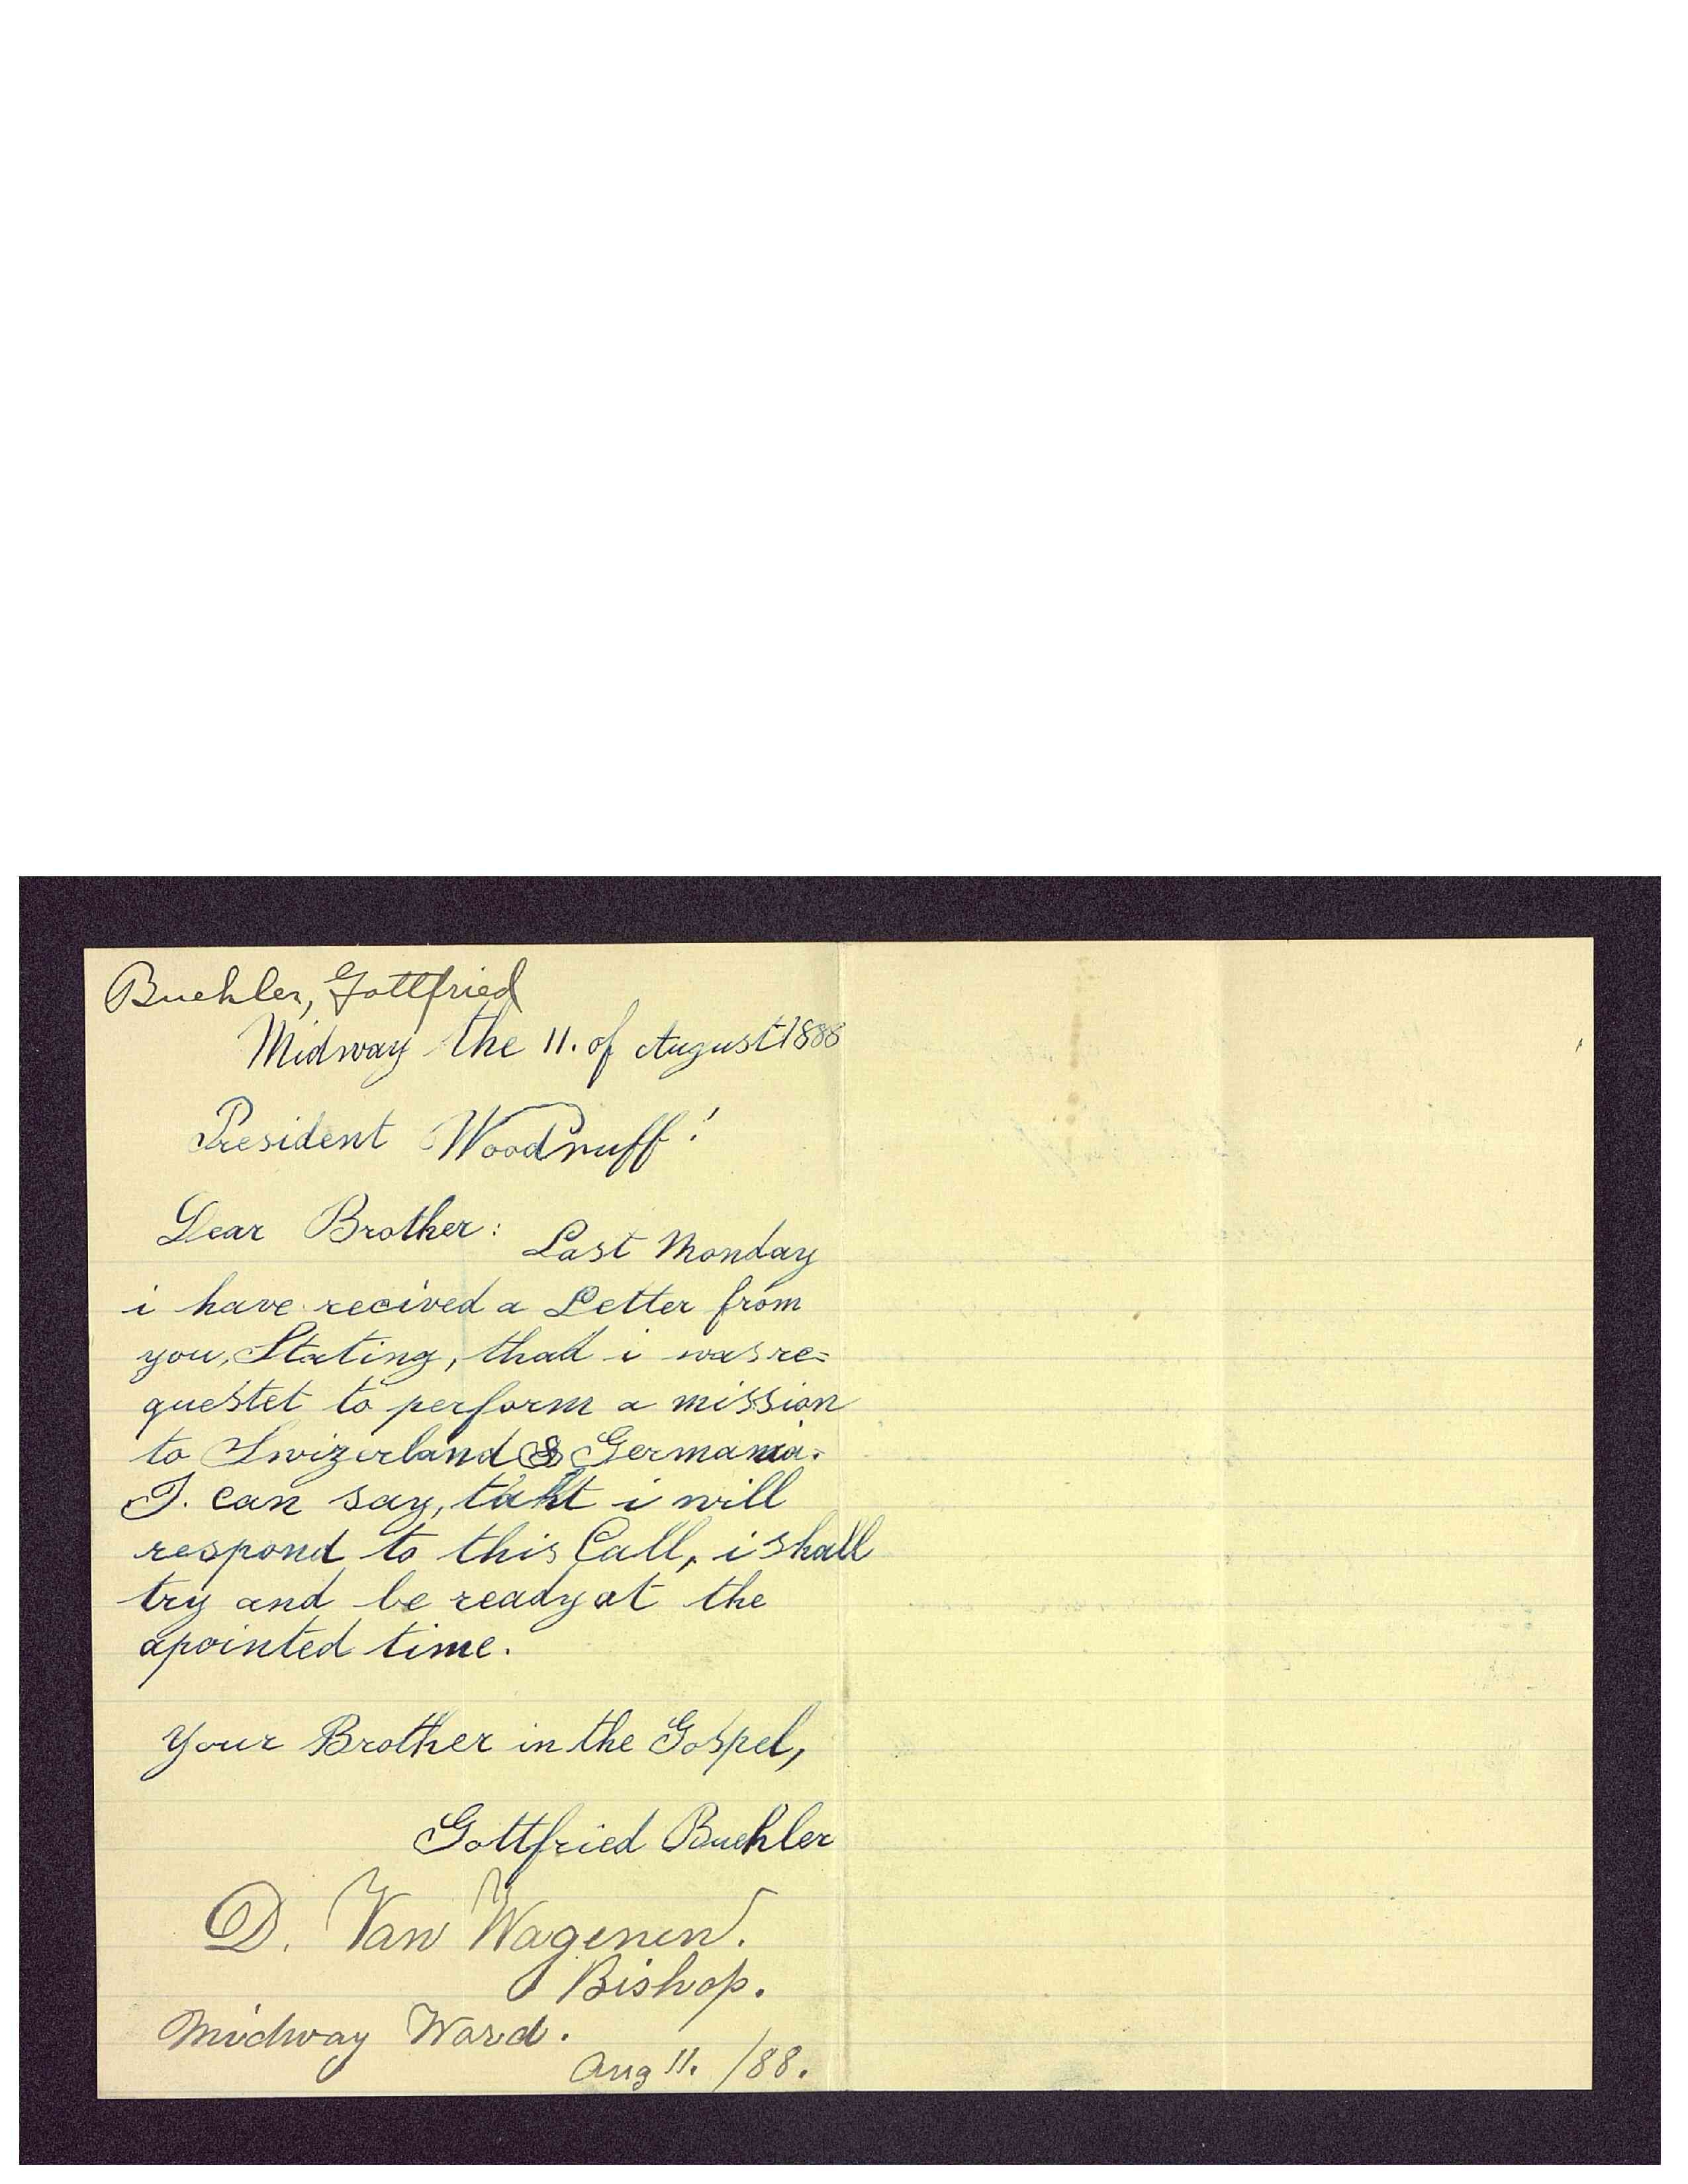 Buehler, Gottfried
Midway the 11. of August 1888
President Woodruff!
Dear Brother: Last Monday
i have recived a Letter from
you, Stating, thad i was re=
questet to perform a mission
to Swizerland & Germania.
I. can say, taht i will
respond to this Call, i shall
try and be ready at the
apointed time.
Your Brother in the Gospel,
Gottfried Buehler
D. Van Wagenen.
Bishop.
Midway Ward.
Aug 11. /88.